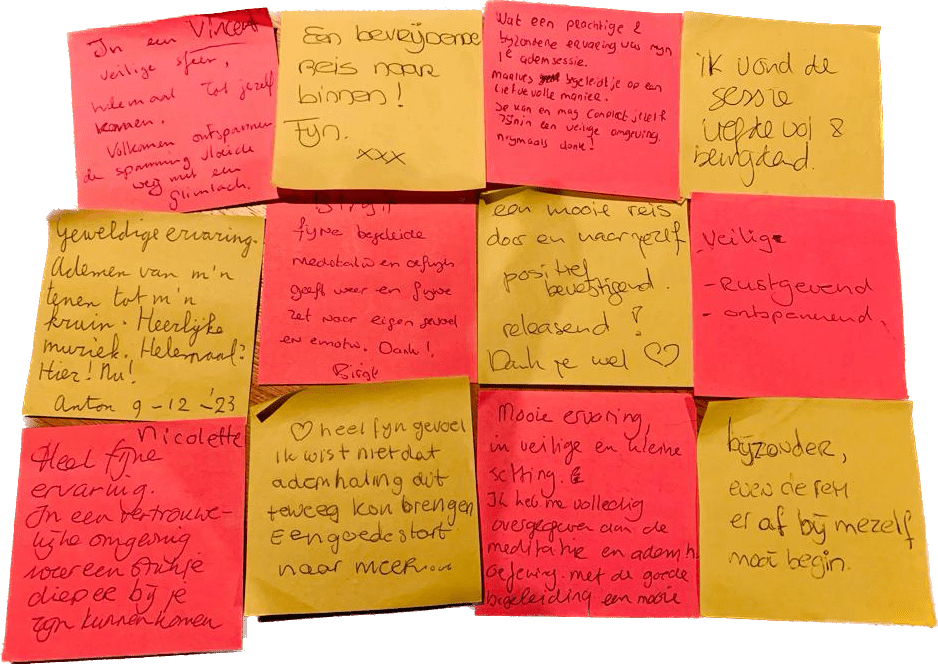 Vincent
In een
veilige sfeer,
helemaal tot jezelf
komen.
Volkomen ontspannen
de spanning vloeide
weg met een
glimlach.
Een bevrijdende
reis naar
binnen!
Fijn.
xxx
Wat een prachtige &
bijzondere ervaring was mijn
1e ademsessie.
begeleidt je op een
liefdevolle manier.
Je kan en mag compleet jezelf
zijn in een veilige omgeving.
nogmaals dank!
Ik vond de
sessie
liefdevol &
Geweldige ervaring.
Ademen van m'n
tenen tot m'n
kruin. Heerlijke
muziek. Helemaal?
Hier! Nu!
Anton 9-12-'23
Birgit
fijne begeleide
meditatie en
geeft weer een fijne
zet naar eigen gevoel
en emotie. Dank!
Birgit
een mooie reis
door en naar jezelf
positief
bevestigend.
releasend!
Dank je wel ♡
Veilig
- Rustgevend
- ontspannend
Nicolette
Heel fijne
ervaring.
In een vertrouwe-
lijke omgeving
weer een stukje
dieper bij je
zijn kunnen komen
♡ heel fijn gevoel
ik wist niet dat
ademhaling dit
teweeg kon brengen
Een goede start
naar meer....
Mooie ervaring,
in veilige en kleine
setting.
Ik heb me volledig
overgegeven aan de
meditatie en ademh.
oefening. met de goede
begeleiding een mooie
bijzonder,
even de rem
er af bij mezelf
mooi begin.